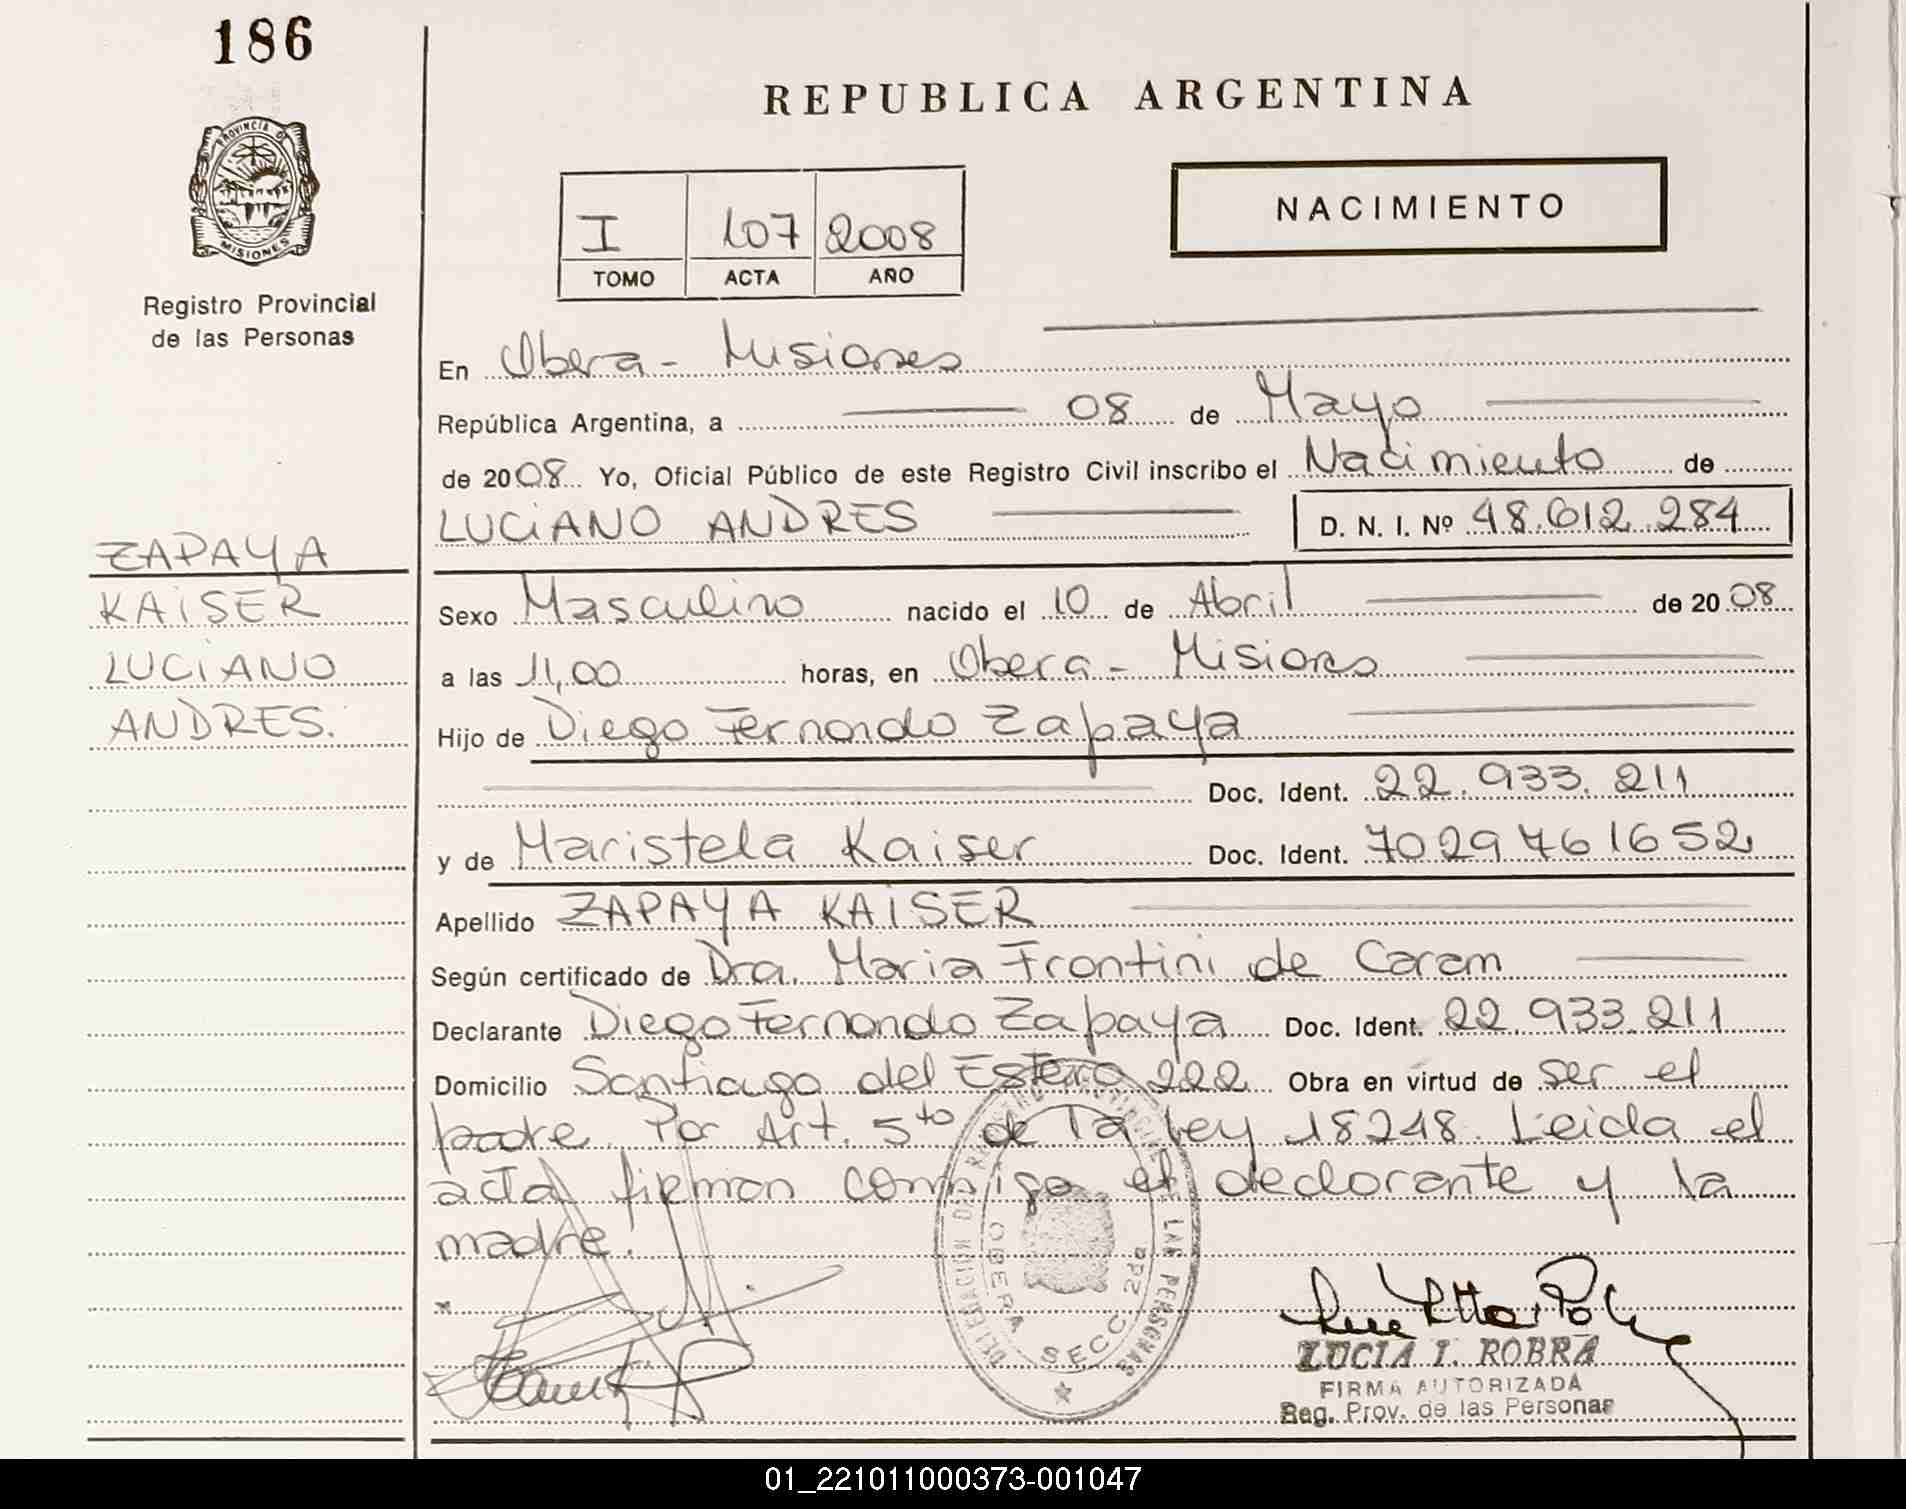 186
PROVINCIA DE
MISIONES
Registro Provincial
de las Personas
REPUBLICA ARGENTINA
I 107 2008
TOMO ACTA AÑO
NACIMIENTO
En Obera - Misiones
República Argentina, a 08 de Mayo
de 2008 Yo, Oficial Público de este Registro Civil inscribo el Nacimiento de
LUCIANO ANDRES D. N. I. Nº 48.612.284
ZAPAYA
KAISER
LUCIANO
ANDRES.
Sexo Masculino nacido el 10 de Abril de 2008
a las 11,00 horas, en Obera - Misiones
Hijo de Diego Fernando Zapaya
Doc. Ident. 22.933.211
y de Maristela Kaiser Doc. Ident. 7029761652
Apellido ZAPAYA KAISER
Según certificado de Dra. Maria Frontini de Caram
Declarante Diego Fernando Zapaya Doc. Ident. 22.933.211
Domicilio Santiago del Estero 222 Obra en virtud de ser el
padre. Por Art. 5to de la Ley 18248. Leida el
acta firman conmigo el declarante y la
madre.
DELEGACION DEL REGISTRO PROVINCIAL DE LAS PERSONAS
OBERA SECC. 2da
LUCIA I. ROBRA
FIRMA AUTORIZADA
Reg. Prov. de las Personas
01_221011000373-001047